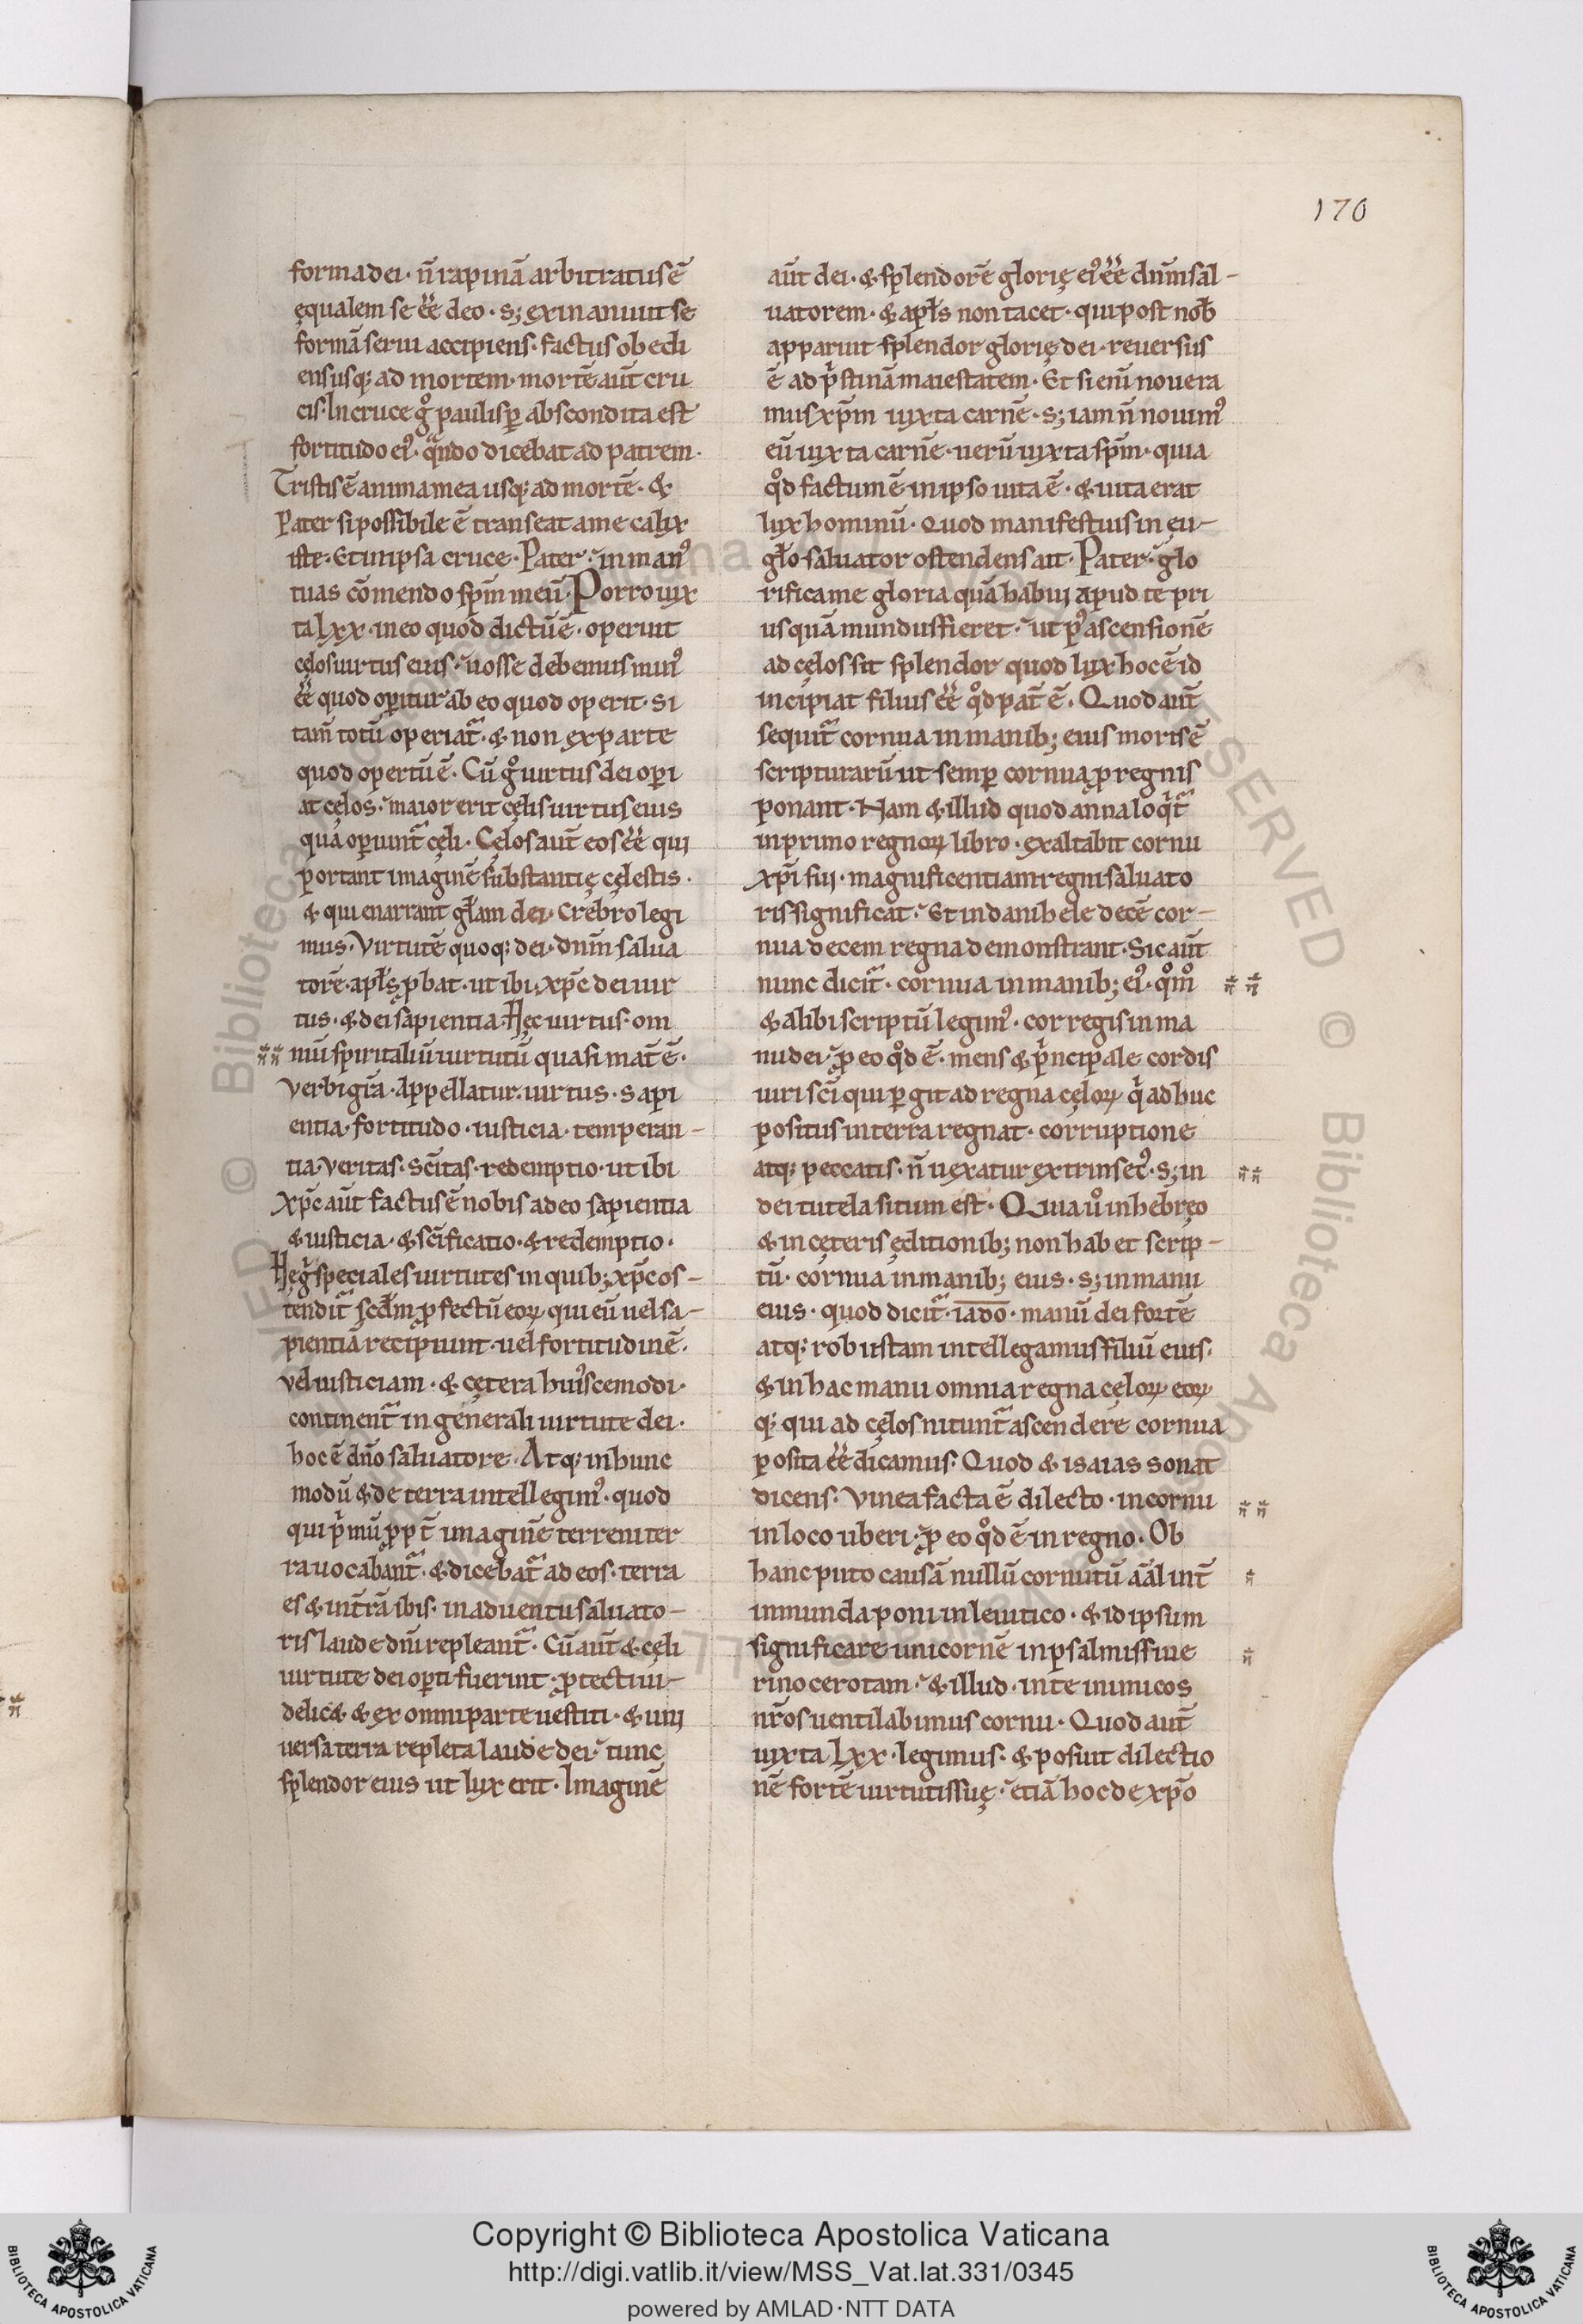 170
forma dei · n̄ rapinā arbitratus ē
ęqualem se ēē deo · s; exinaniuit se
formā serui accipiens · factus obedi
ens usq; ad mortem · mortē aūt cru
cis · In cruce gͦ paulisꝑ abscondita est
fortitudo eiꝰ · qͣndo dicebat ad patrem ·
Tristis ē anima mea usq; ad mortē · &
Pater si possibile ē transeat a me calix
iste · Et in ipsa cruce · Pater · in manꝰ
tuas cōmendo sp̄m meū · Porro iux
ta Lxx · in eo quod dictū ē · operuit
cęlos uirtus eius · nosse debemus minꝰ
ēē quod oꝑitur ab eo quod operit · si
tam̄ totū operiat᷑ · & non ex parte
quod opertū ē · Cū gͦ uirtus dei oꝑi
at cęlos · maior erit cęlis uirtus eius
quā oꝑiunt᷑ cęli · Cęlos aūt eos ēē qui
portant imaginē substantię cęlestis ·
& qui enarrant gl̄am dei · crebro legi
mus · Virtutē quoq; dei · dn̄m salua
torē · apl̄s ꝓbat · ut ibi · xp̄c dei uir
tus · & dei sapientia · Hęc uirtus · om
niū spiritaliū uirtutū quasi mat̄ ē ·
Verbi gr̄a · Appellatur · uirtus · sapi
entia · fortitudo · iusticia · temperan-
tia · veritas · sc̄itas · redemptio · ut ibi
Xp̄c aūt factus ē nobis a deo sapientia
& iusticia · & sc̄ificatio · & redemptio ·
Hę gͦ speciales uirtutes in quib; xp̄c os-
tendit᷑ scd̄m ꝓfectū eoꝝ qui eū uel sa-
pientiā recipiunt · uel fortitudinē ·
vel iusticiam · & cętera huiꝰscemodi ·
continent᷑ in generali uirtute dei ·
hoc ē dn̄o saluatore · Atq; in hunc
modū & de terra intellegimꝰ · quod
qui pͥmū ꝓpt̄ imaginē terreni ter
ra uocabant᷑ · & dicebat᷑ ad eos · terra
es & in t̄rā ibis · in aduentu saluato-
ris laude dn̄i repleant᷑ · Cū aūt & cęli
uirtute dei oꝑti fuerint · ꝓtecti ui-
delicet & ex omni parte uestiti · & uni
uersa terra repleta laude dei · tunc
splendor eius ut lux erit · Imaginē
aūt dei · & splendorē glorię eiꝰ ēē dn̄m sal-
uatorem · & apl̄s non tacet · qui post nob̄
apparuit splendor glorię dei · reuersus
ē ad pͥstinā maiestatem · Et si enī nouera
mus xp̄m iuxta carnē · s; iam n̄ nouimꝰ
eū iuxta carnē · uerū iuxta sp̄m · quia
qͦd factum ē in ipso uita ē · & uita erat
lux hominū · Quod manifestius in eu-
gl̄o saluator ostendens ait · Pater · glo
rifica me gloria quā habui apud te pri
usquā mundus fieret · ut pꝰ ascensionē
ad cęlos sit splendor quod lux hoc ē id
incipiat filius ēē qͦd pat̄ ē · Quod aūt
sequit᷑ cornua in manib; eius moris ē
scripturarū ut semꝑ cornua ꝓ regnis
ponant · Nam & illud quod anna loqͥt᷑
in primo regnoꝝ libro · exaltabit cornu
xp̄i sui · magnificentiam regni saluato
ris significat · Et in danihele decē cor-
nua decem regna demonstrant · Sic aūt
nunc dicit᷑ · cornua in manib; eiꝰ · qͦm̄
& alibi scriptū legimꝰ · cor regis in ma
nu dei · ꝓ eo qͦd ē · mens & pͥncipale cordis
uiri sc̄i qui ꝑgit ad regna cęloꝝ qͥ adhuc
positus in terra regnat · corruptione
atq; peccatis · n̄ uexatur extrinsecꝰ · s; in
dei tutela situm est · Quia uͦ in hebręo
& in cęteris ęditionib; non habet scrip-
tū · cornua in manib; eius · s; in manu
eius · quod dicit᷑ · iado · manū dei fortē
atq; robustam intellegamus filiū eius ·
& in hac manu omnia regna cęloꝝ eoꝝ
q; qui ad cęlos nitunt᷑ ascendere cornua
posita ēē dicamus · Quod & isaias sonat
dicens · Vinea facta ē dilecto · in cornu
in loco uberi · ꝓ eo qͦd ē in regno · Ob
hanc puto causā nullū cornutū āāl int̄
inmunda poni in leuitico · & id ipsum
significare unicornē in psalmis siue
rinocerotam · & illud · in te inimicos
nr̄os uentilabimus cornu · Quod aūt
iuxta Lxx · legimus · & posuit dilectio
nē fortē uirtutis suę · etiā hoc de xp̄o
Copyright © Biblioteca Apostolica Vaticana
http://digi.vatlib.it/view/MSS_Vat.lat.331/0345
powered by AMLAD·NTT DATA
BIBLIOTECA APOSTOLICA VATICANA
BIBLIOTECA APOSTOLICA VATICANA